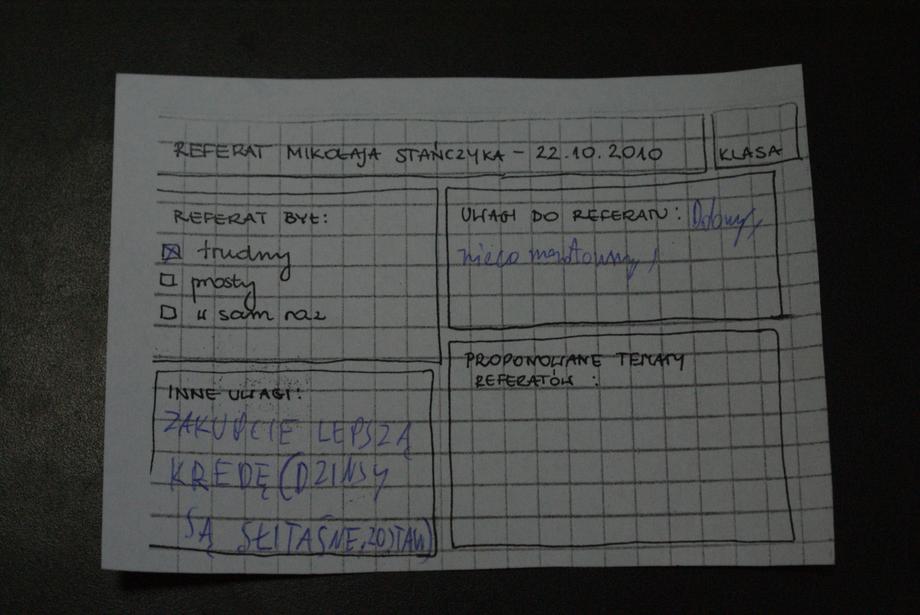 REFERAT MIKOŁAJA STAŃCZYKA - 22.10.2010
KLASA
REFERAT BYŁ:
trudny
prosty
w sam raz
UWAGI DO REFERATU: Dobry,
nieco
INNE UWAGI:
ZAKUPCIE LEPSZĄ
KREDĘ (DZINSY
SĄ SŁITAŚNE, ZOSTAW)
PROPONOWANE TEMATY
REFERATÓW: